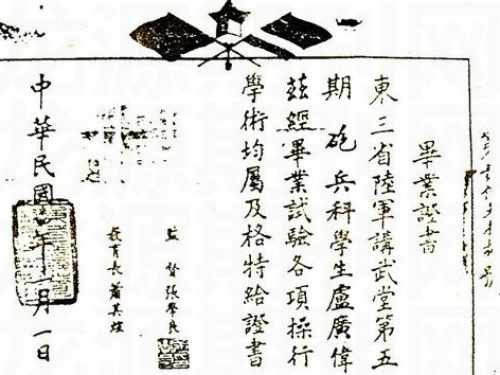 畢業證書
東三省陸軍講武堂第五
期砲兵科學生盧廣偉
茲經畢業試驗各項操行
學術均屬及格特給證書
監督張學良
教育長蕭其煊
中華民國年十一月一日